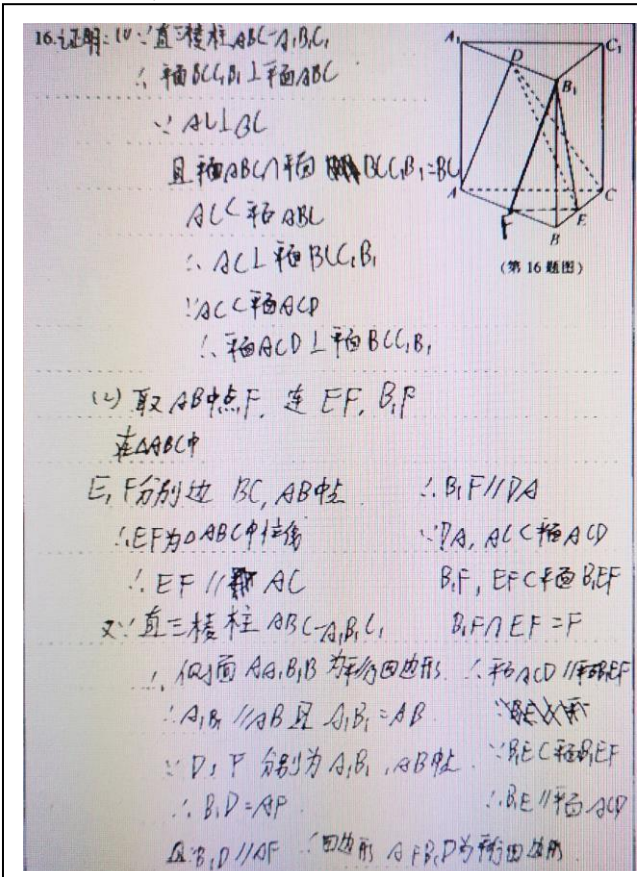 16.证明:(1)∵直三棱柱ABC-A₁B₁C₁
∴平面BCC₁B₁⊥平面ABC
∵AC⊥BC
且平面ABC∩平面BCC₁B₁=BC
AC⊂平面ABC
∴AC⊥平面BCC₁B₁
∵AC⊂平面ACD
∴平面ACD⊥平面BCC₁B₁
A₁
C₁
D
B₁
A
C
F
E
B
(第16题图)
(2)取AB中点F,连EF,B₁F
在△ABC中
E,F分别边BC,AB中点
∴EF为△ABC中位线
∴EF//AC
又∵直三棱柱ABC-A₁B₁C₁
∴侧面AA₁B₁B为平行四边形
∴A₁B₁//AB且A₁B₁=AB
∵D,F分别为A₁B₁,AB中点
∴B₁D=AF
且B₁D//AF ∴四边形AFB₁D为平行四边形
∴B₁F//DA
∵DA,AC⊂平面ACD
B₁F,EF⊂平面B₁EF
B₁F∩EF=F
∴平面ACD//平面B₁EF
∵B₁E⊂平面B₁EF
∴B₁E//平面ACD